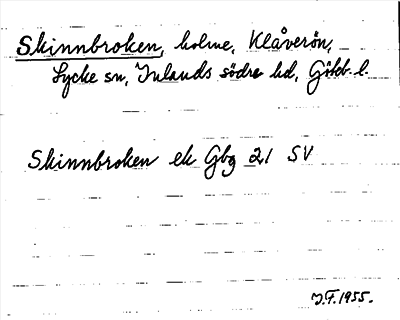 Skinnbroken, holme, Klåverön,
Lycke sn, Inlands södre hd, Göteb. l.
Skinnbroken ek Gbg 21 SV
J.F. 1955.